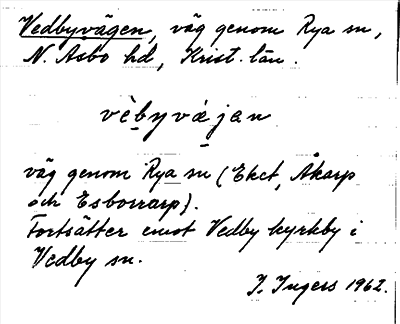 Vedbyvägen, väg genom Rya sn,
N. Åsbo hd, Krist. län.
vèbyvä́jan
väg genom Rya sn (Eket, Åkarp
och Esborrarp).
Fortsätter emot Vedby kyrkby i
Vedby sn.
I. Ingers 1962.